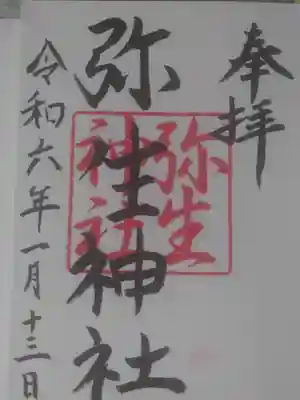 奉拝
弥生神社
弥生
神社
令和六年一月十三日